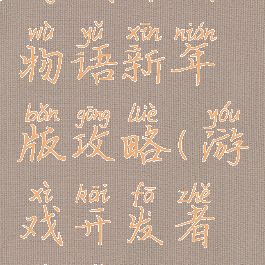 wù yǔ xīn nián
物语新年
bǎn gōng lüè yóu
版攻略(游
xì kāi fā zhě
戏开发者